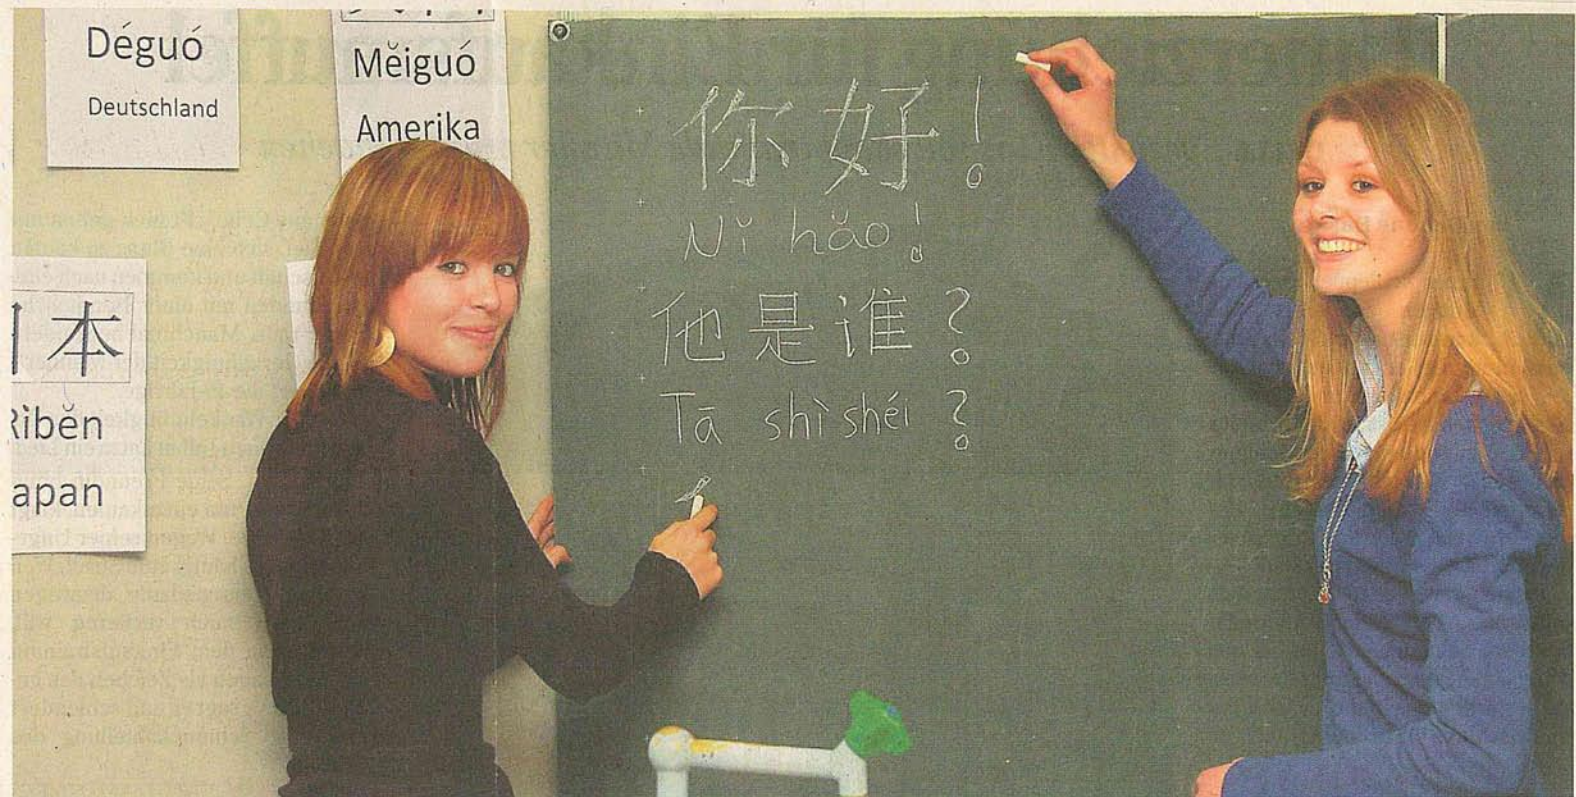 Déguó
Deutschland
Měiguó
Amerika
本
Rìběn
apan
你好!
Nǐ hǎo!
他是谁?
Tā shì shéi?